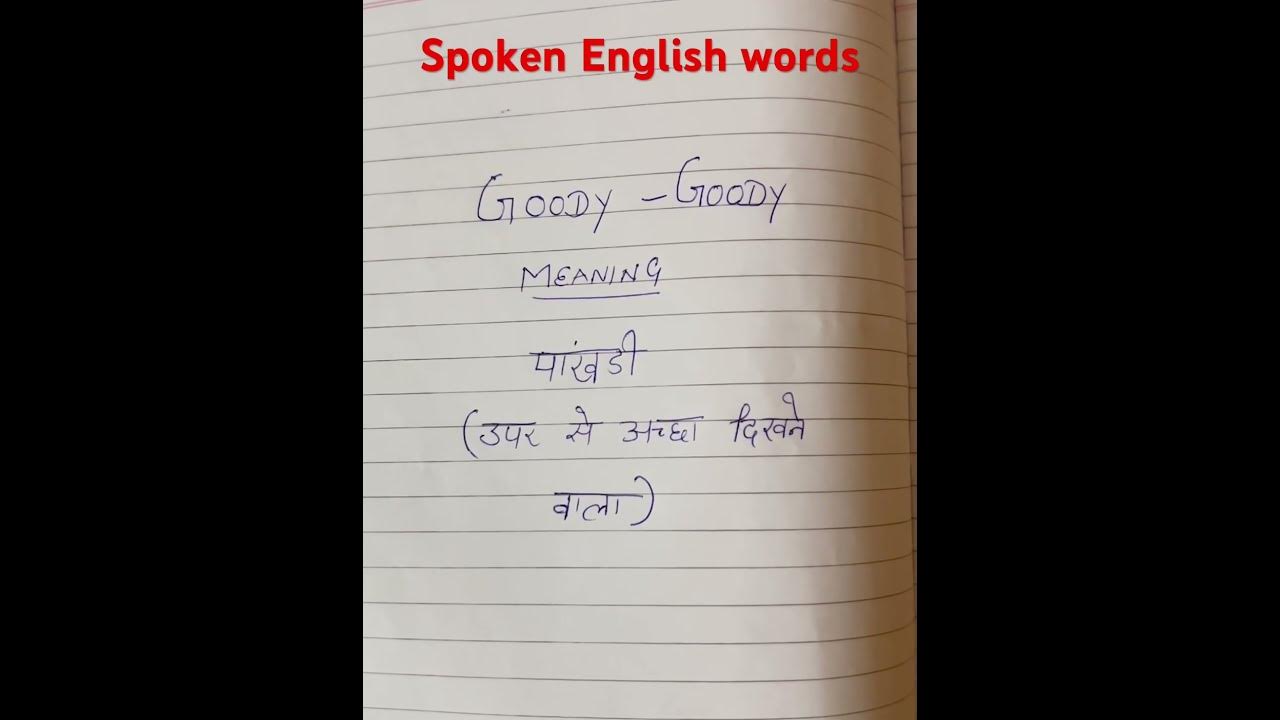 Spoken English words
GOODY - GOODY
MEANING
पांखडी
(उपर से अच्छा दिखने
वाला)